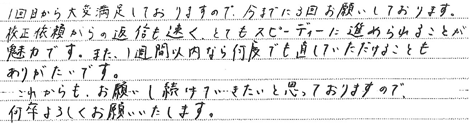 1回目から大変満足しておりますので、今までに3回お願いしております。
校正依頼からの返信も速く、とてもスピーディーに進められることが
魅力です。また、1週間以内なら何度でも直していただけることも
ありがたいです。
これからも、お願いし続けていきたいと思っておりますので、
何卒よろしくお願いいたします。